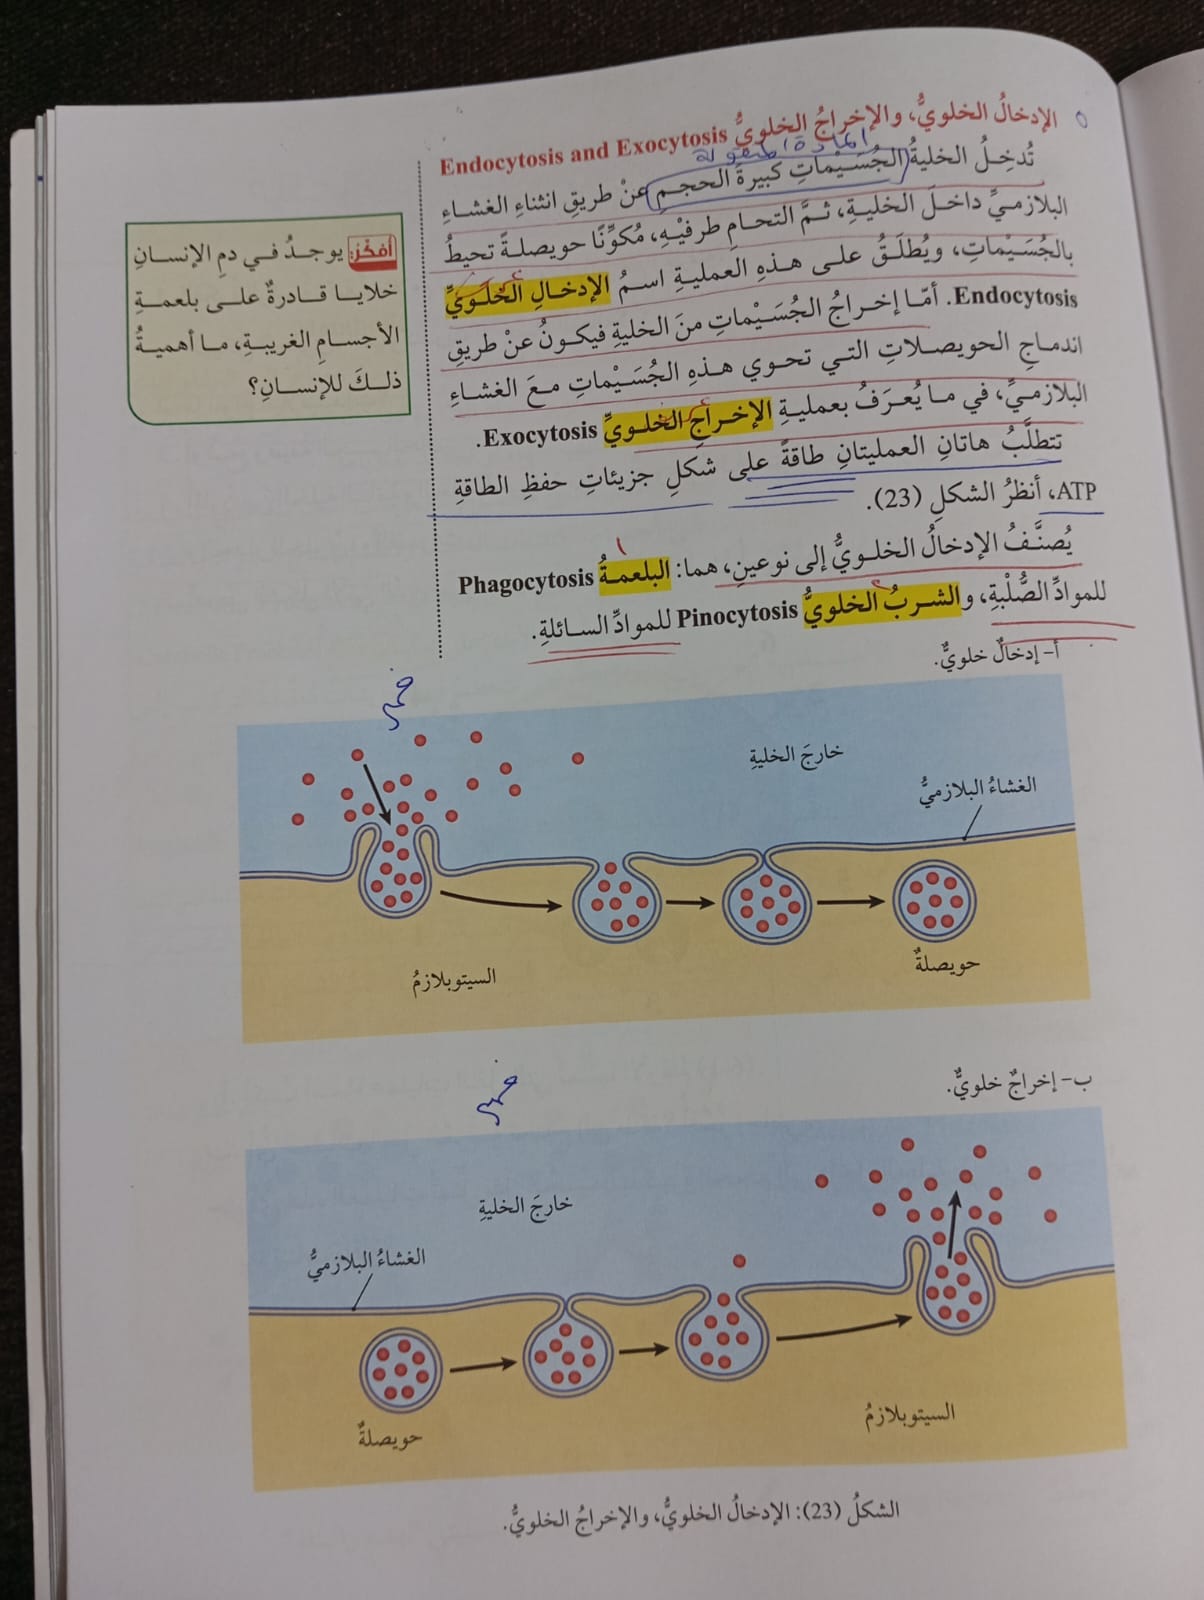 الإدخالُ الخلويُّ، والإخراجُ الخلويُّ Endocytosis and Exocytosis
المادة المنقولة
تُدخِلُ الخليةُ الجُسَيْماتِ كبيرةَ الحجمِ عنْ طريقِ انثناءِ الغشاءِ
البلازميِّ داخلَ الخليةِ، ثمَّ التحامِ طرفيْهِ، مُكوِّنًا حويصلةً تحيطُ
بالجُسَيْماتِ، ويُطلَقُ على هذهِ العمليةِ اسمُ الإدخالِ الخلويِّ
Endocytosis. أمّا إخراجُ الجُسَيْماتِ منَ الخليةِ فيكونُ عنْ طريقِ
اندماجِ الحويصلاتِ التي تحوي هذهِ الجُسَيْماتِ معَ الغشاءِ
البلازميِّ، في ما يُعرَفُ بعمليةِ الإخراجِ الخلويِّ Exocytosis.
تتطلَّبُ هاتانِ العمليتانِ طاقةً على شكلِ جزيئاتِ حفظِ الطاقةِ
ATP، أنظرُ الشكلِ (23).
يُصنَّفُ الإدخالُ الخلويُّ إلى نوعينِ، هما: البلعمةُ Phagocytosis
للموادِّ الصُّلْبةِ، والشربُ الخلويُّ Pinocytosis للموادِّ السائلةِ.
أفكّر: يوجدُ في دمِ الإنسانِ
خلايا قادرةٌ على بلعمةِ
الأجسامِ الغريبةِ، ما أهميةُ
ذلكَ للإنسانِ؟
أ- إدخالٌ خلويٌّ.
خارجَ الخليةِ
الغشاءُ البلازميُّ
حويصلةٌ
السيتوبلازمُ
ب- إخراجٌ خلويٌّ.
خارجَ الخليةِ
الغشاءُ البلازميُّ
السيتوبلازمُ
حويصلةٌ
الشكلُ (23): الإدخالُ الخلويُّ، والإخراجُ الخلويُّ.